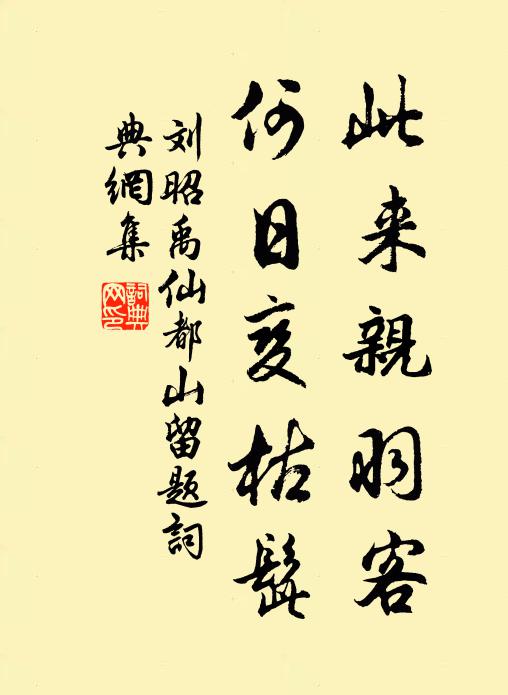 此来親羽客
何日变枯髭
刘昭禹仙都山留题詞
典網集
詞典网印